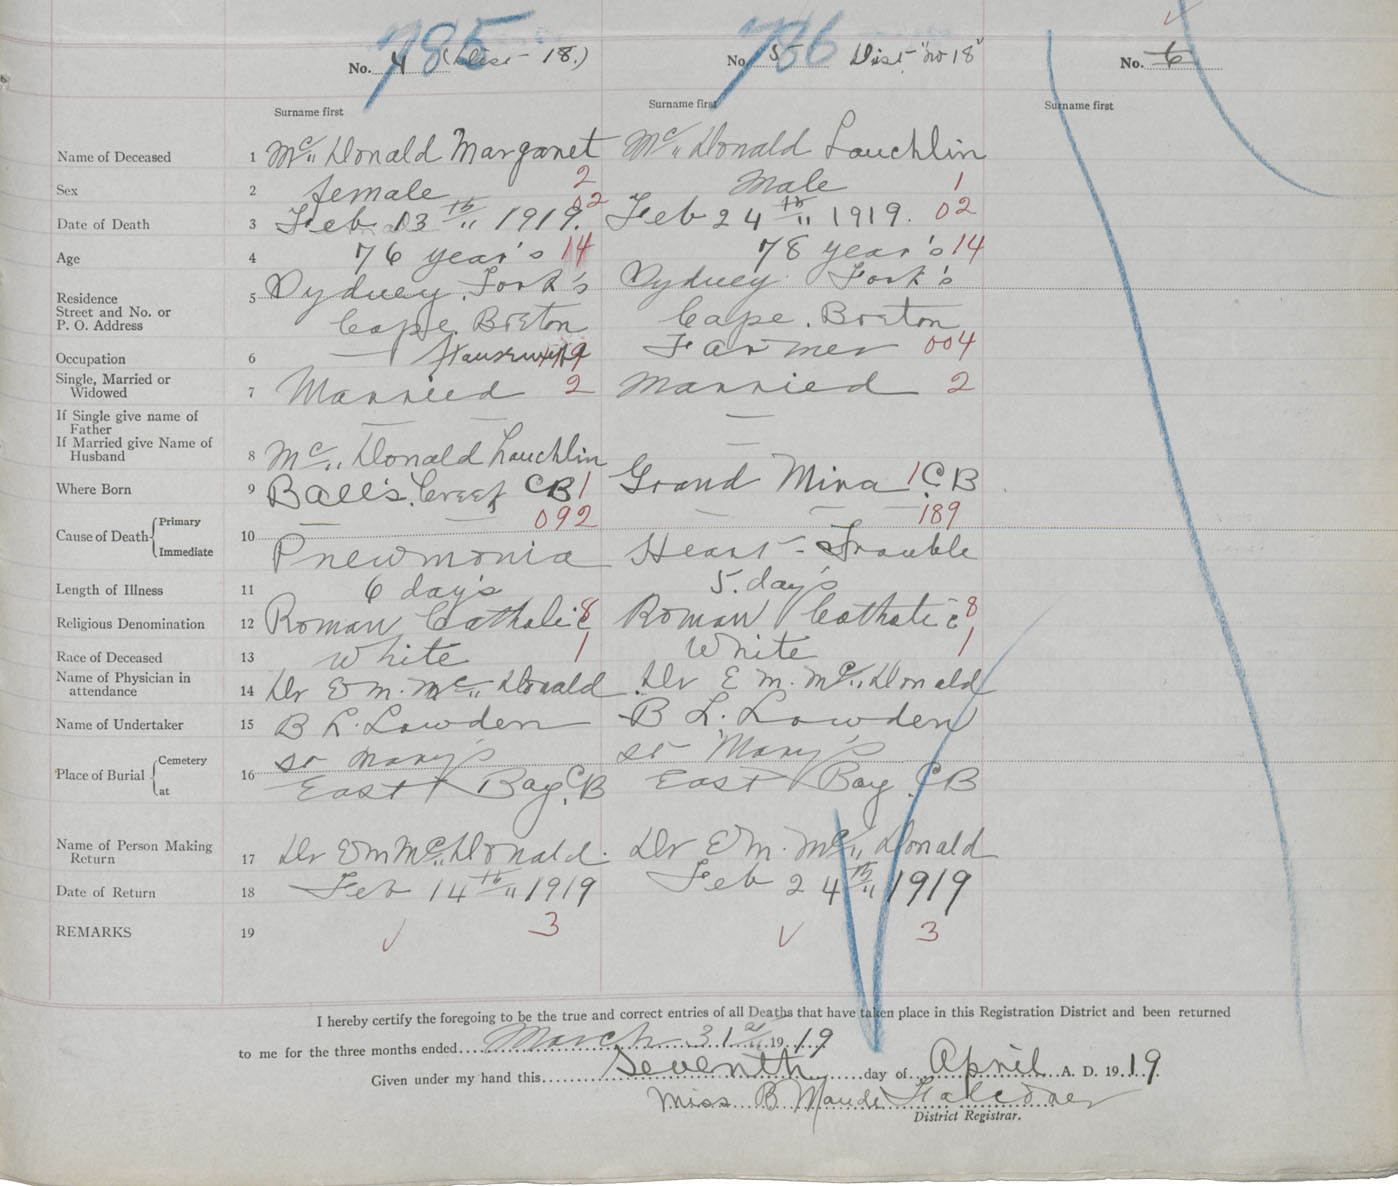 785 786
No. 4 (Dist - 18.) No. 5 Dist - "no 18" No. 6
Surname first Surname first Surname first
Name of Deceased 1 Mc" Donald Margaret Mc" Donald Lauchlin
Sex 2 female 2 Male 1
Date of Death 3 Feb. 13th " 1919. 02 Feb 24th " 1919. 02
Age 4 76 year's 14 78 year's 14
Residence
Street and No. or
P. O. Address 5 Sydney Fork's Sydney Fork's
Cape. Breton Cape. Breton
Occupation 6 — Housewife — Farmer 004
Single, Married or
Widowed 7 Married 2 Married 2
If Single give name of
Father — —
If Married give Name of
Husband 8 Mc" Donald Lauchlin —
Where Born 9 Ball's Creek CB 1 Grand Mira 1 CB
Cause of Death { Primary — — 092 — — — 189
Immediate 10 Pnewmonia Heart - Trouble
Length of Illness 11 6 day's 5. day's
Religious Denomination 12 Roman Catholic 8 Roman Catholic 8
Race of Deceased 13 White 1 White 1
Name of Physician in
attendance 14 Dr E M. Mc" Donald Dr E M. Mc" Donald
Name of Undertaker 15 B L. Lowden B L. Lowden
Place of Burial { Cemetery St Mary's St Mary's
at 16 East Bay CB East Bay CB
Name of Person Making
Return 17 Dr E M Mc" Donald. Dr E M. Mc" Donald
Date of Return 18 Feb 14th " 1919 Feb 24th " 1919
REMARKS 19 3 3
I hereby certify the foregoing to be the true and correct entries of all Deaths that have taken place in this Registration District and been returned
to me for the three months ended March 31st 1919
Given under my hand this Seventh day of April A. D. 1919.
Miss B Maude Falconer
District Registrar.